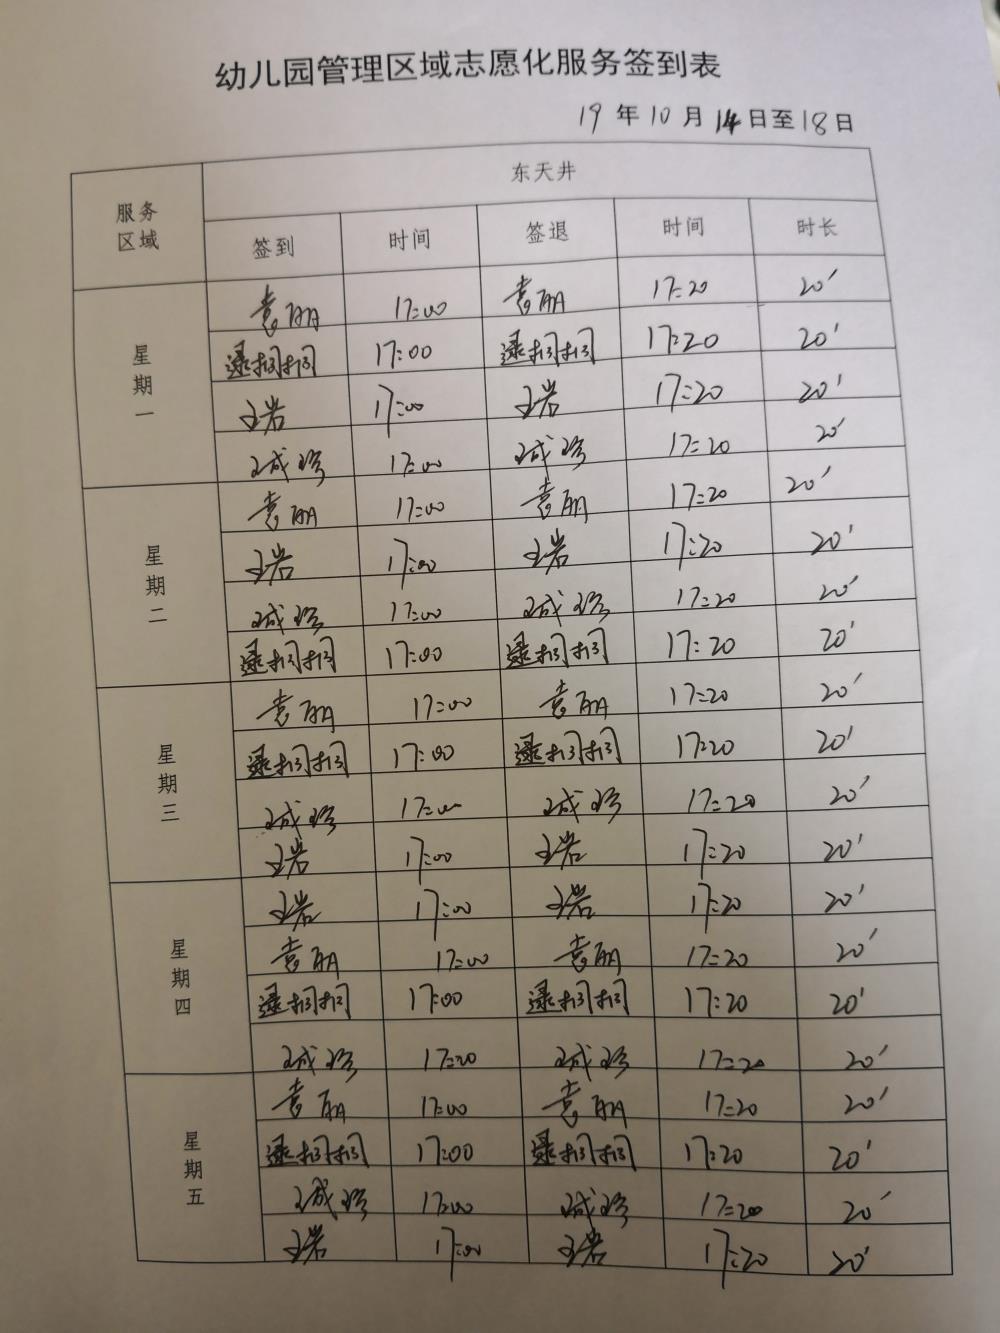 幼儿园管理区域志愿化服务签到表
19年10月14日至18日
服务区域 东天井
签到 时间 签退 时间 时长
星期一
袁丽 17:00 袁丽 17:20 20'
17:00 17:20 20'
王岩 17:00 王岩 17:20 20'
17:00 17:20 20'
星期二
袁丽 17:00 袁丽 17:20 20'
王岩 17:00 王岩 17:20 20'
17:00 17:20 20'
17:00 17:20 20'
星期三
袁丽 17:00 袁丽 17:20 20'
17:00 17:20 20'
17:00 17:20 20'
王岩 17:00 王岩 17:20 20'
星期四
王岩 17:00 王岩 17:20 20'
袁丽 17:00 袁丽 17:20 20'
17:00 17:20 20'
17:20 17:20 20'
星期五
袁丽 17:00 袁丽 17:20 20'
17:00 17:20 20'
17:00 17:20 20'
王岩 17:00 王岩 17:20 20'